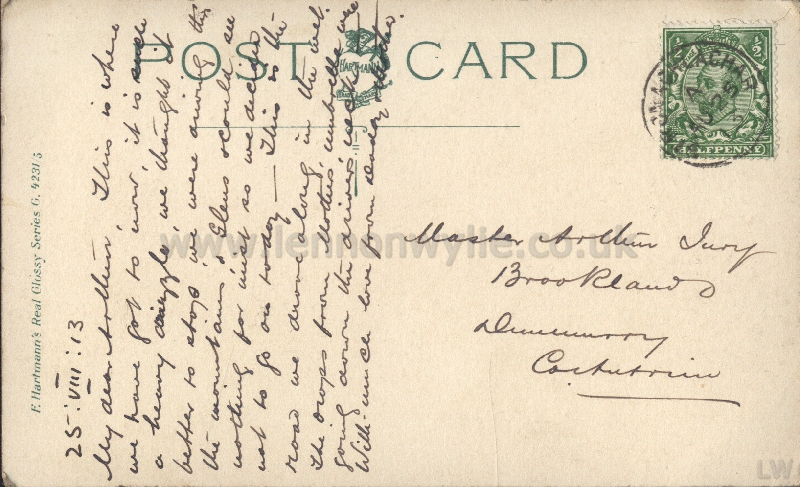 POST CARD
HARTMANN
F. Hartmann's Real Glossy Series G. 4231/5
25:VIII:13
My dear Arthur. This is where
we have got to now, it is such
a heavy drizzle, we thought it
better to stop, we were driving thro
the mountains & Glens & could see
nothing for mist so we decided
not to go on today — This is the
road we drove along in the wet.
The drops from Mothers' umbrella were
going down the drivers neck
With much love from Daddy & Mother.
½ ½
HALFPENNY
AU 25
Master Arthur Jury
Brooklands
Dunmurry
Co. Antrim
www.lennonwylie.co.uk
LW